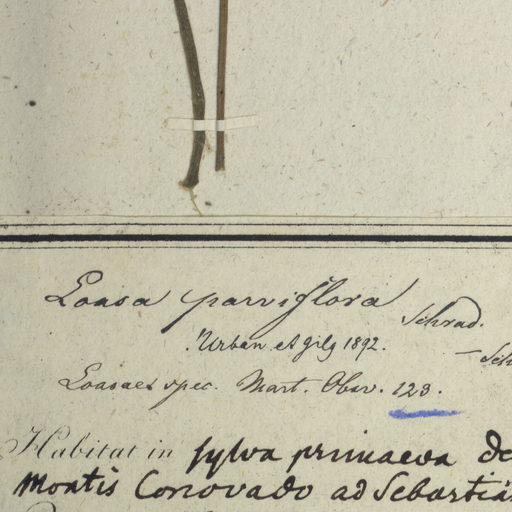 Loasa parviflora Schrad.
Urban et Gilg 1892. — Sch
Loasaes spec. Mart. Obsv. 123.
Habitat in sylva primaeva de
Montis Corcovado ad Sebastia